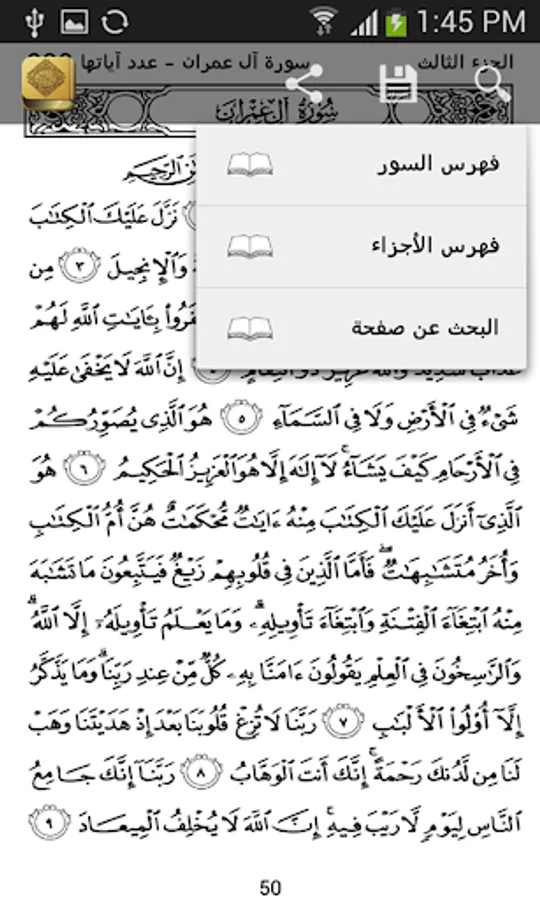 1:45 PM
الجزء الثالث
سورة آل عمران - عدد آياتها
سُورَةُ آلِ عِمْرَانَ
فهرس السور
الرَّحِيمِ
نَزَّلَ عَلَيْكَ الْكِتَابَ
فهرس الأجزاء
وَالْإِنجِيلَ ٣ مِن
البحث عن صفحة
بِـَٔايَاتِ اللَّهِ لَهُمْ
إِنَّ اللَّهَ لَا يَخْفَىٰ عَلَيْهِ
شَيْءٌ فِي الْأَرْضِ وَلَا فِي السَّمَاءِ ٥ هُوَ الَّذِي يُصَوِّرُكُمْ
فِي الْأَرْحَامِ كَيْفَ يَشَاءُ ۚ لَا إِلَٰهَ إِلَّا هُوَ الْعَزِيزُ الْحَكِيمُ ٦ هُوَ
الَّذِي أَنزَلَ عَلَيْكَ الْكِتَابَ مِنْهُ ءَايَاتٌ مُّحْكَمَاتٌ هُنَّ أُمُّ الْكِتَابِ
وَأُخَرُ مُتَشَابِهَاتٌ ۖ فَأَمَّا الَّذِينَ فِي قُلُوبِهِمْ زَيْغٌ فَيَتَّبِعُونَ مَا تَشَابَهَ
مِنْهُ ابْتِغَاءَ الْفِتْنَةِ وَابْتِغَاءَ تَأْوِيلِهِ ۗ وَمَا يَعْلَمُ تَأْوِيلَهُ إِلَّا اللَّهُ ۗ
وَالرَّاسِخُونَ فِي الْعِلْمِ يَقُولُونَ ءَامَنَّا بِهِ كُلٌّ مِّنْ عِندِ رَبِّنَا ۗ وَمَا يَذَّكَّرُ
إِلَّا أُولُوا الْأَلْبَابِ ٧ رَبَّنَا لَا تُزِغْ قُلُوبَنَا بَعْدَ إِذْ هَدَيْتَنَا وَهَبْ
لَنَا مِن لَّدُنكَ رَحْمَةً ۚ إِنَّكَ أَنتَ الْوَهَّابُ ٨ رَبَّنَا إِنَّكَ جَامِعُ
النَّاسِ لِيَوْمٍ لَّا رَيْبَ فِيهِ ۚ إِنَّ اللَّهَ لَا يُخْلِفُ الْمِيعَادَ ٩
50